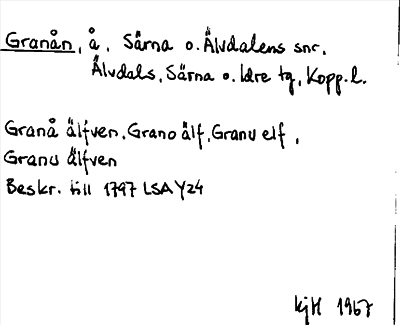 Granån, å, Särna o. Älvdalens snr,
Älvdals, Särna o. Idre tg, Kopp. l.
Granå älfven, Grano älf, Granu elf,
Granu älfven
Beskr. till 1797 LSA Y24
KjH 1967